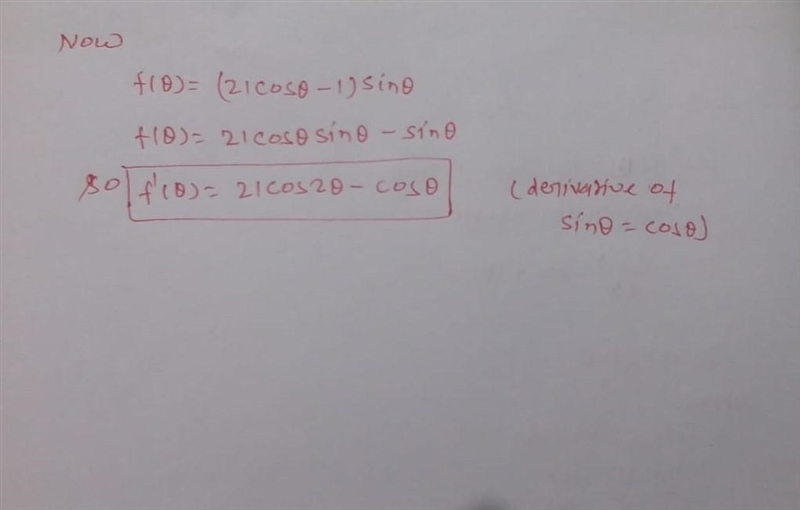 Now
f(θ) = (21cosθ - 1) sinθ
f(θ) = 21cosθ sinθ - sinθ
So f'(θ) = 21cos2θ - cosθ (derivative of
sinθ = cosθ)